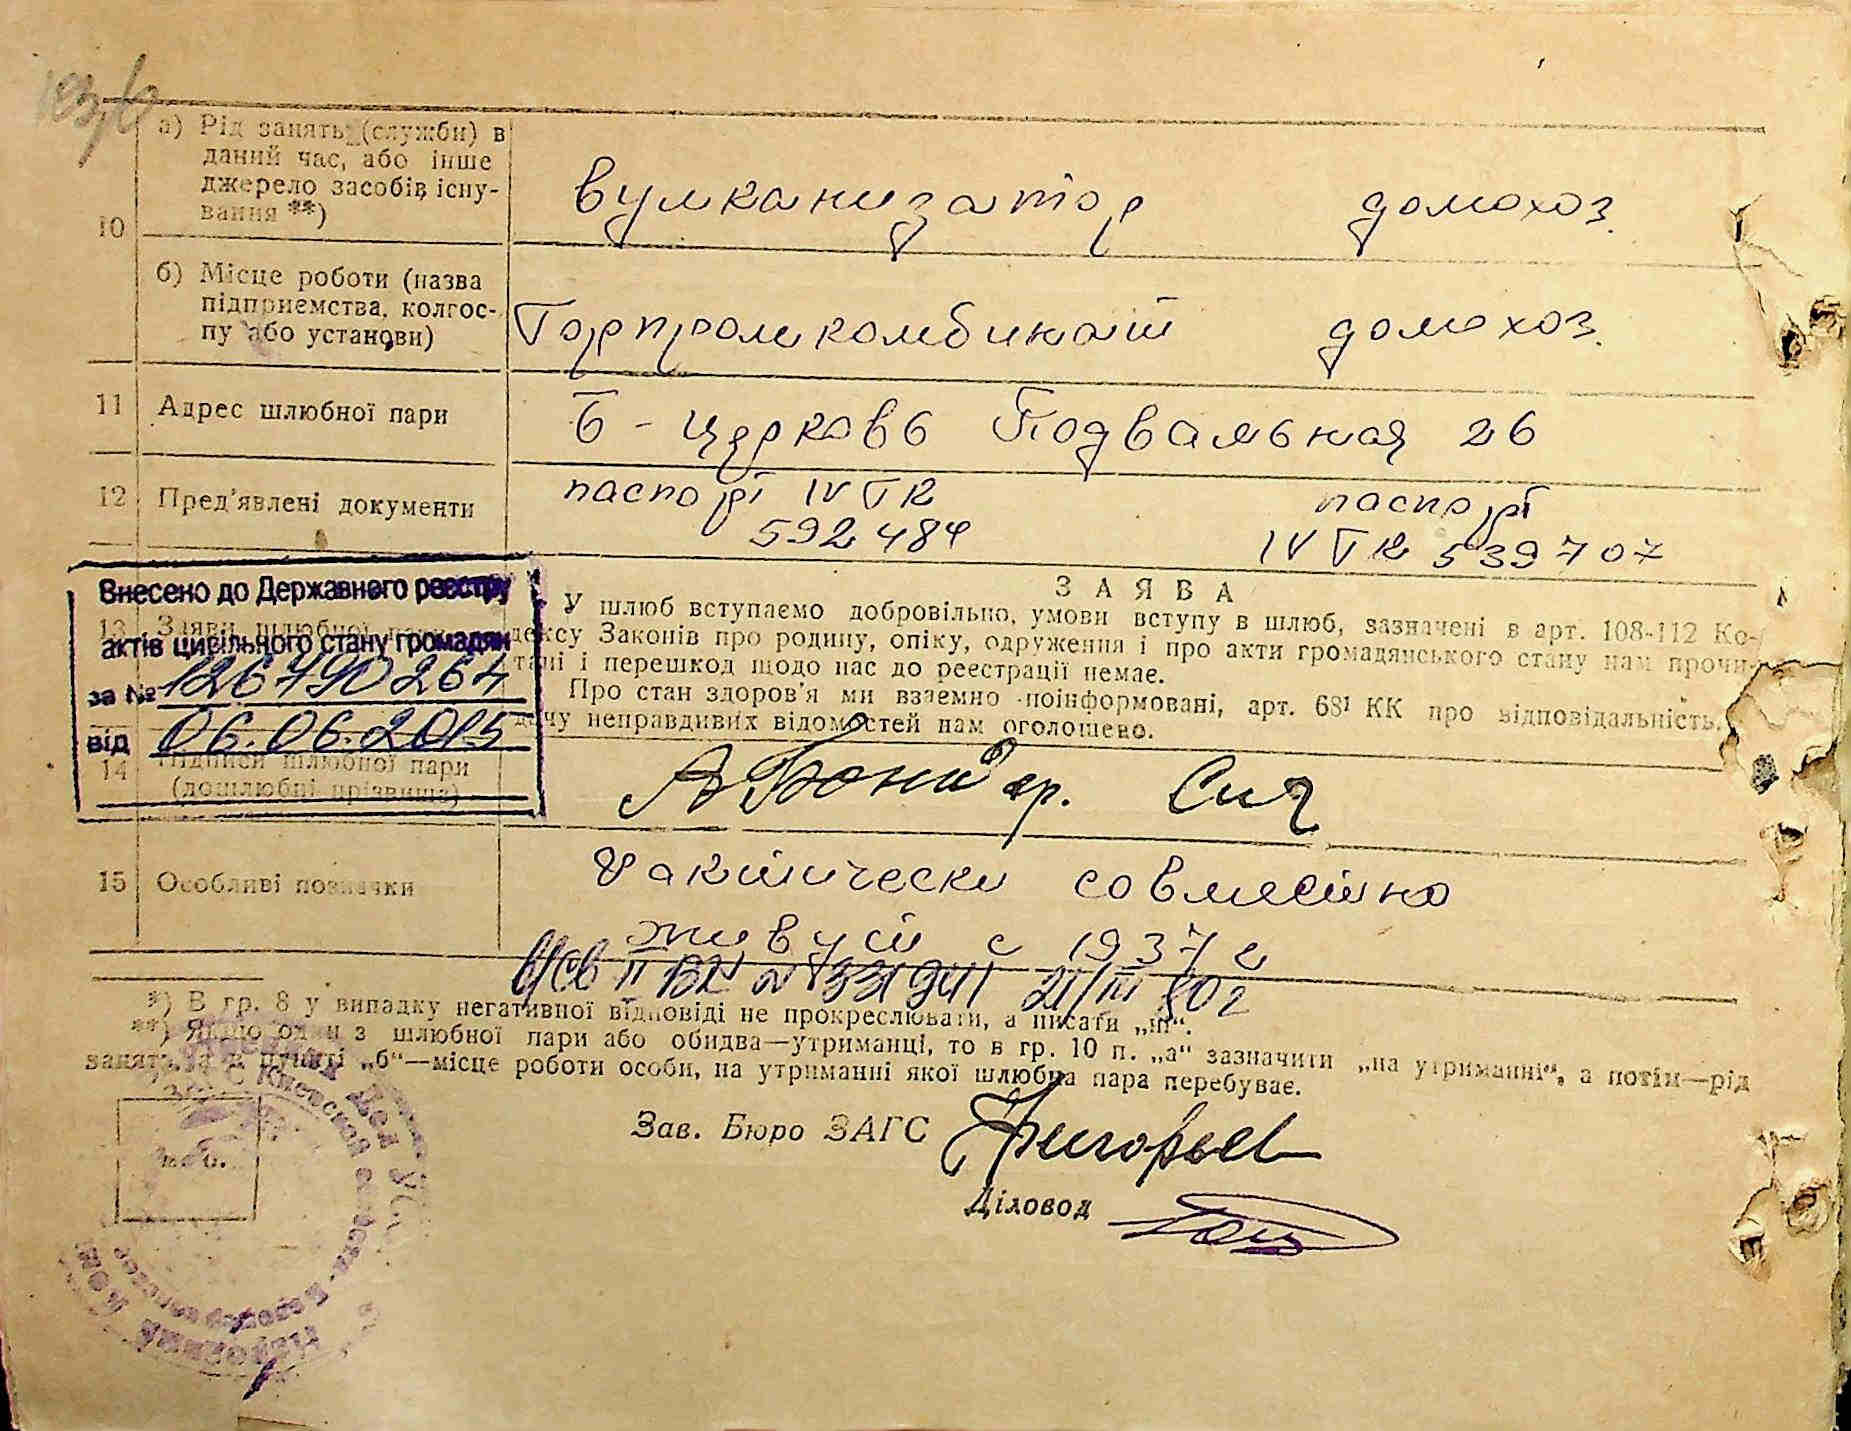 10
а) Рід занять (служби) в
даний час, або інше
джерело засобів існу-
вання **)
вулканизатор домохоз.
б) Місце роботи (назва
підприємства, колгос-
пу або установи)
Горпромкомбинат домохоз.
11 Адрес шлюбної пари
Б-Церковь Подвальная 26
12 Пред'явлені документи
паспорт IV ТК
592484
паспорт
IV ТК 539707
Внесено до Державного реєстру
актів цивільного стану громадян
за № 126790264
від 06.06.2015
13 Заяви шлюбної пари
ЗАЯВА
У шлюб вступаємо добровільно, умови вступу в шлюб, зазначені в арт. 108-112 Ко-
дексу Законів про родину, опіку, одруження і про акти громадянського стану нам прочи-
тані і перешкод щодо нас до реєстрації немає.
Про стан здоров'я ми взаємно поінформовані, арт. 68¹ КК про відповідальність
дачу неправдивих відомостей нам оголошено.
14 Підписи шлюбної пари
(дошлюбні прізвища)
Сич
15 Особливі позначки
Фактически совместно
живут с 1937 г
*) В гр. 8 у випадку негативної відповіді не прокреслювати, а писати „ні“.
**) Якщо один з шлюбної пари або обидва—утриманці, то в гр. 10 п. „а“ зазначити „на утриманні“, а потім—рід
занять, а в пункті „б“—місце роботи особи, на утриманні якої шлюбна пара перебуває.
Зав. Бюро ЗАГС
Діловод